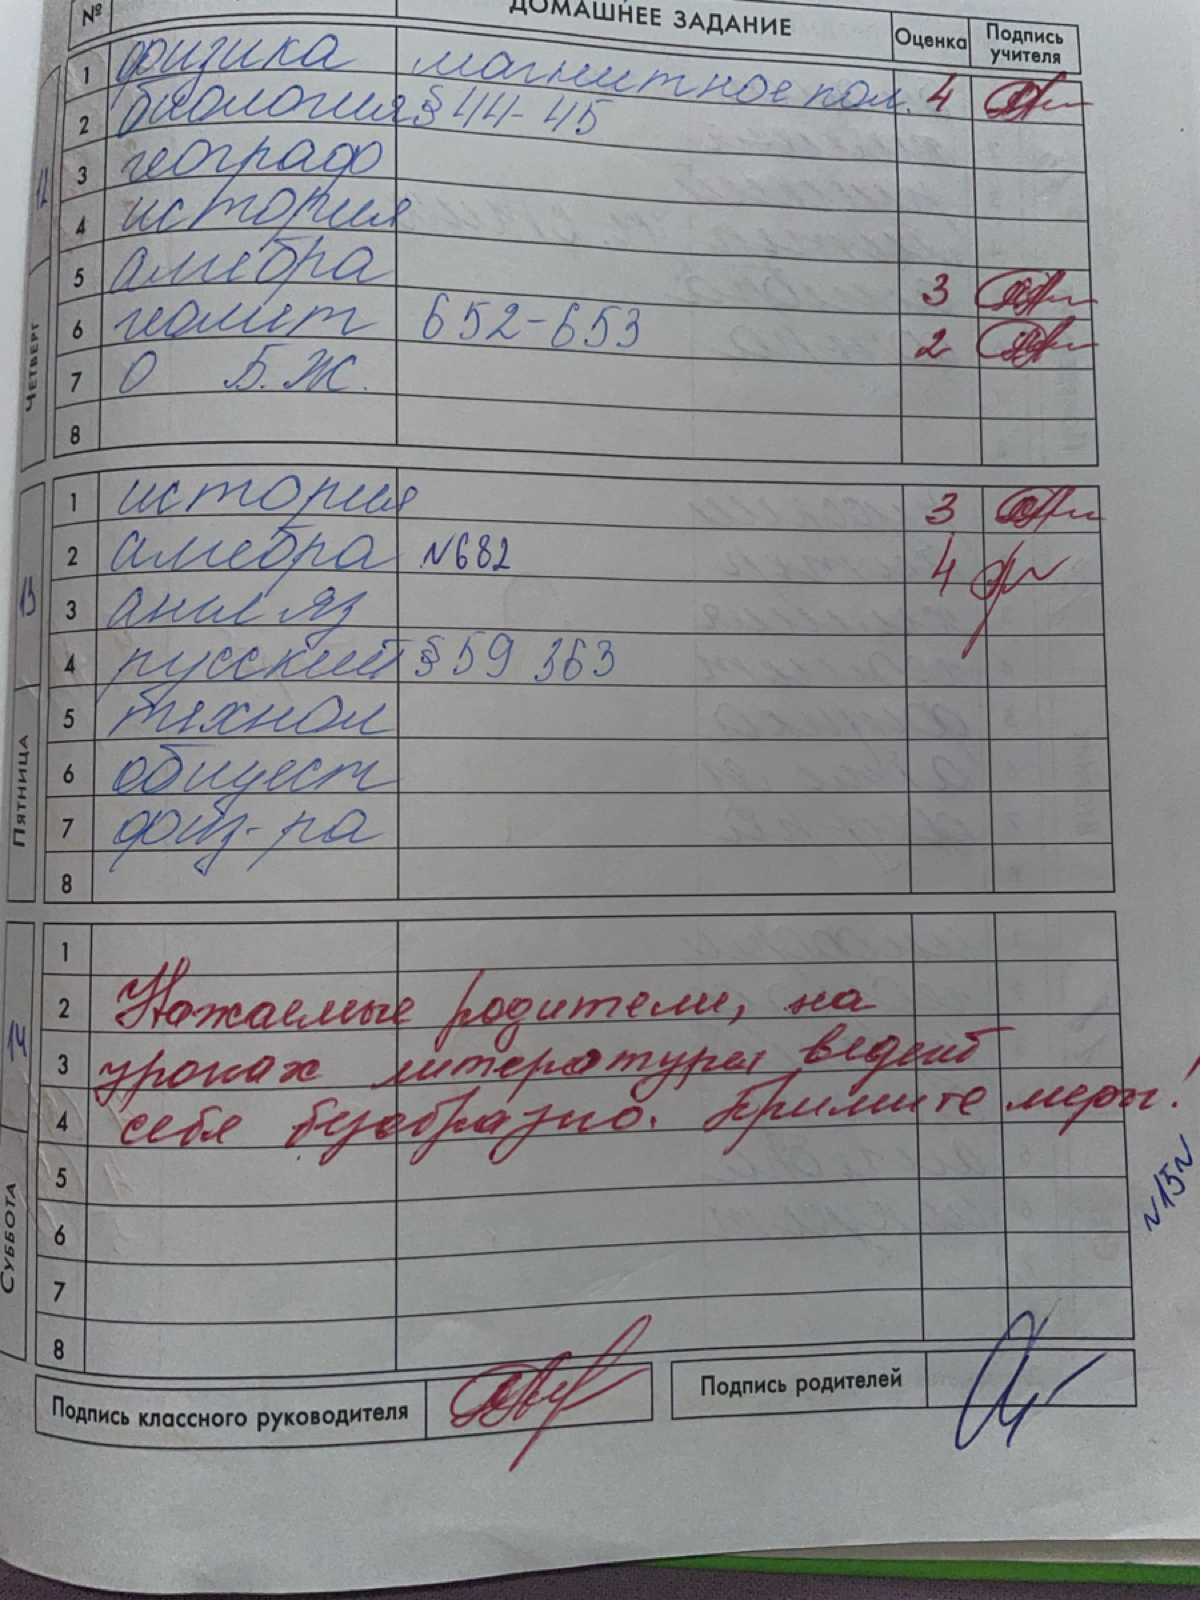 № ДОМАШНЕЕ ЗАДАНИЕ Оценка Подпись учителя
12 ЧЕТВЕРГ
1 физика магнитное пол. 4
2 биология § 44-45
3 географ
4 история
5 алгебра 3
6 геомет 652-653 2
7 О Б.Ж.
8
13 ПЯТНИЦА
1 история 3
2 алгебра №682 4
3 англ яз
4 русский § 59 363
5 технол
6 общест
7 физ-ра
8
14 СУББОТА
1
2 Уважаемые родители, на
3 уроках литературы ведет
4 себя безобразно. Примите меры!
5
6
7
8
Подпись классного руководителя
Подпись родителей